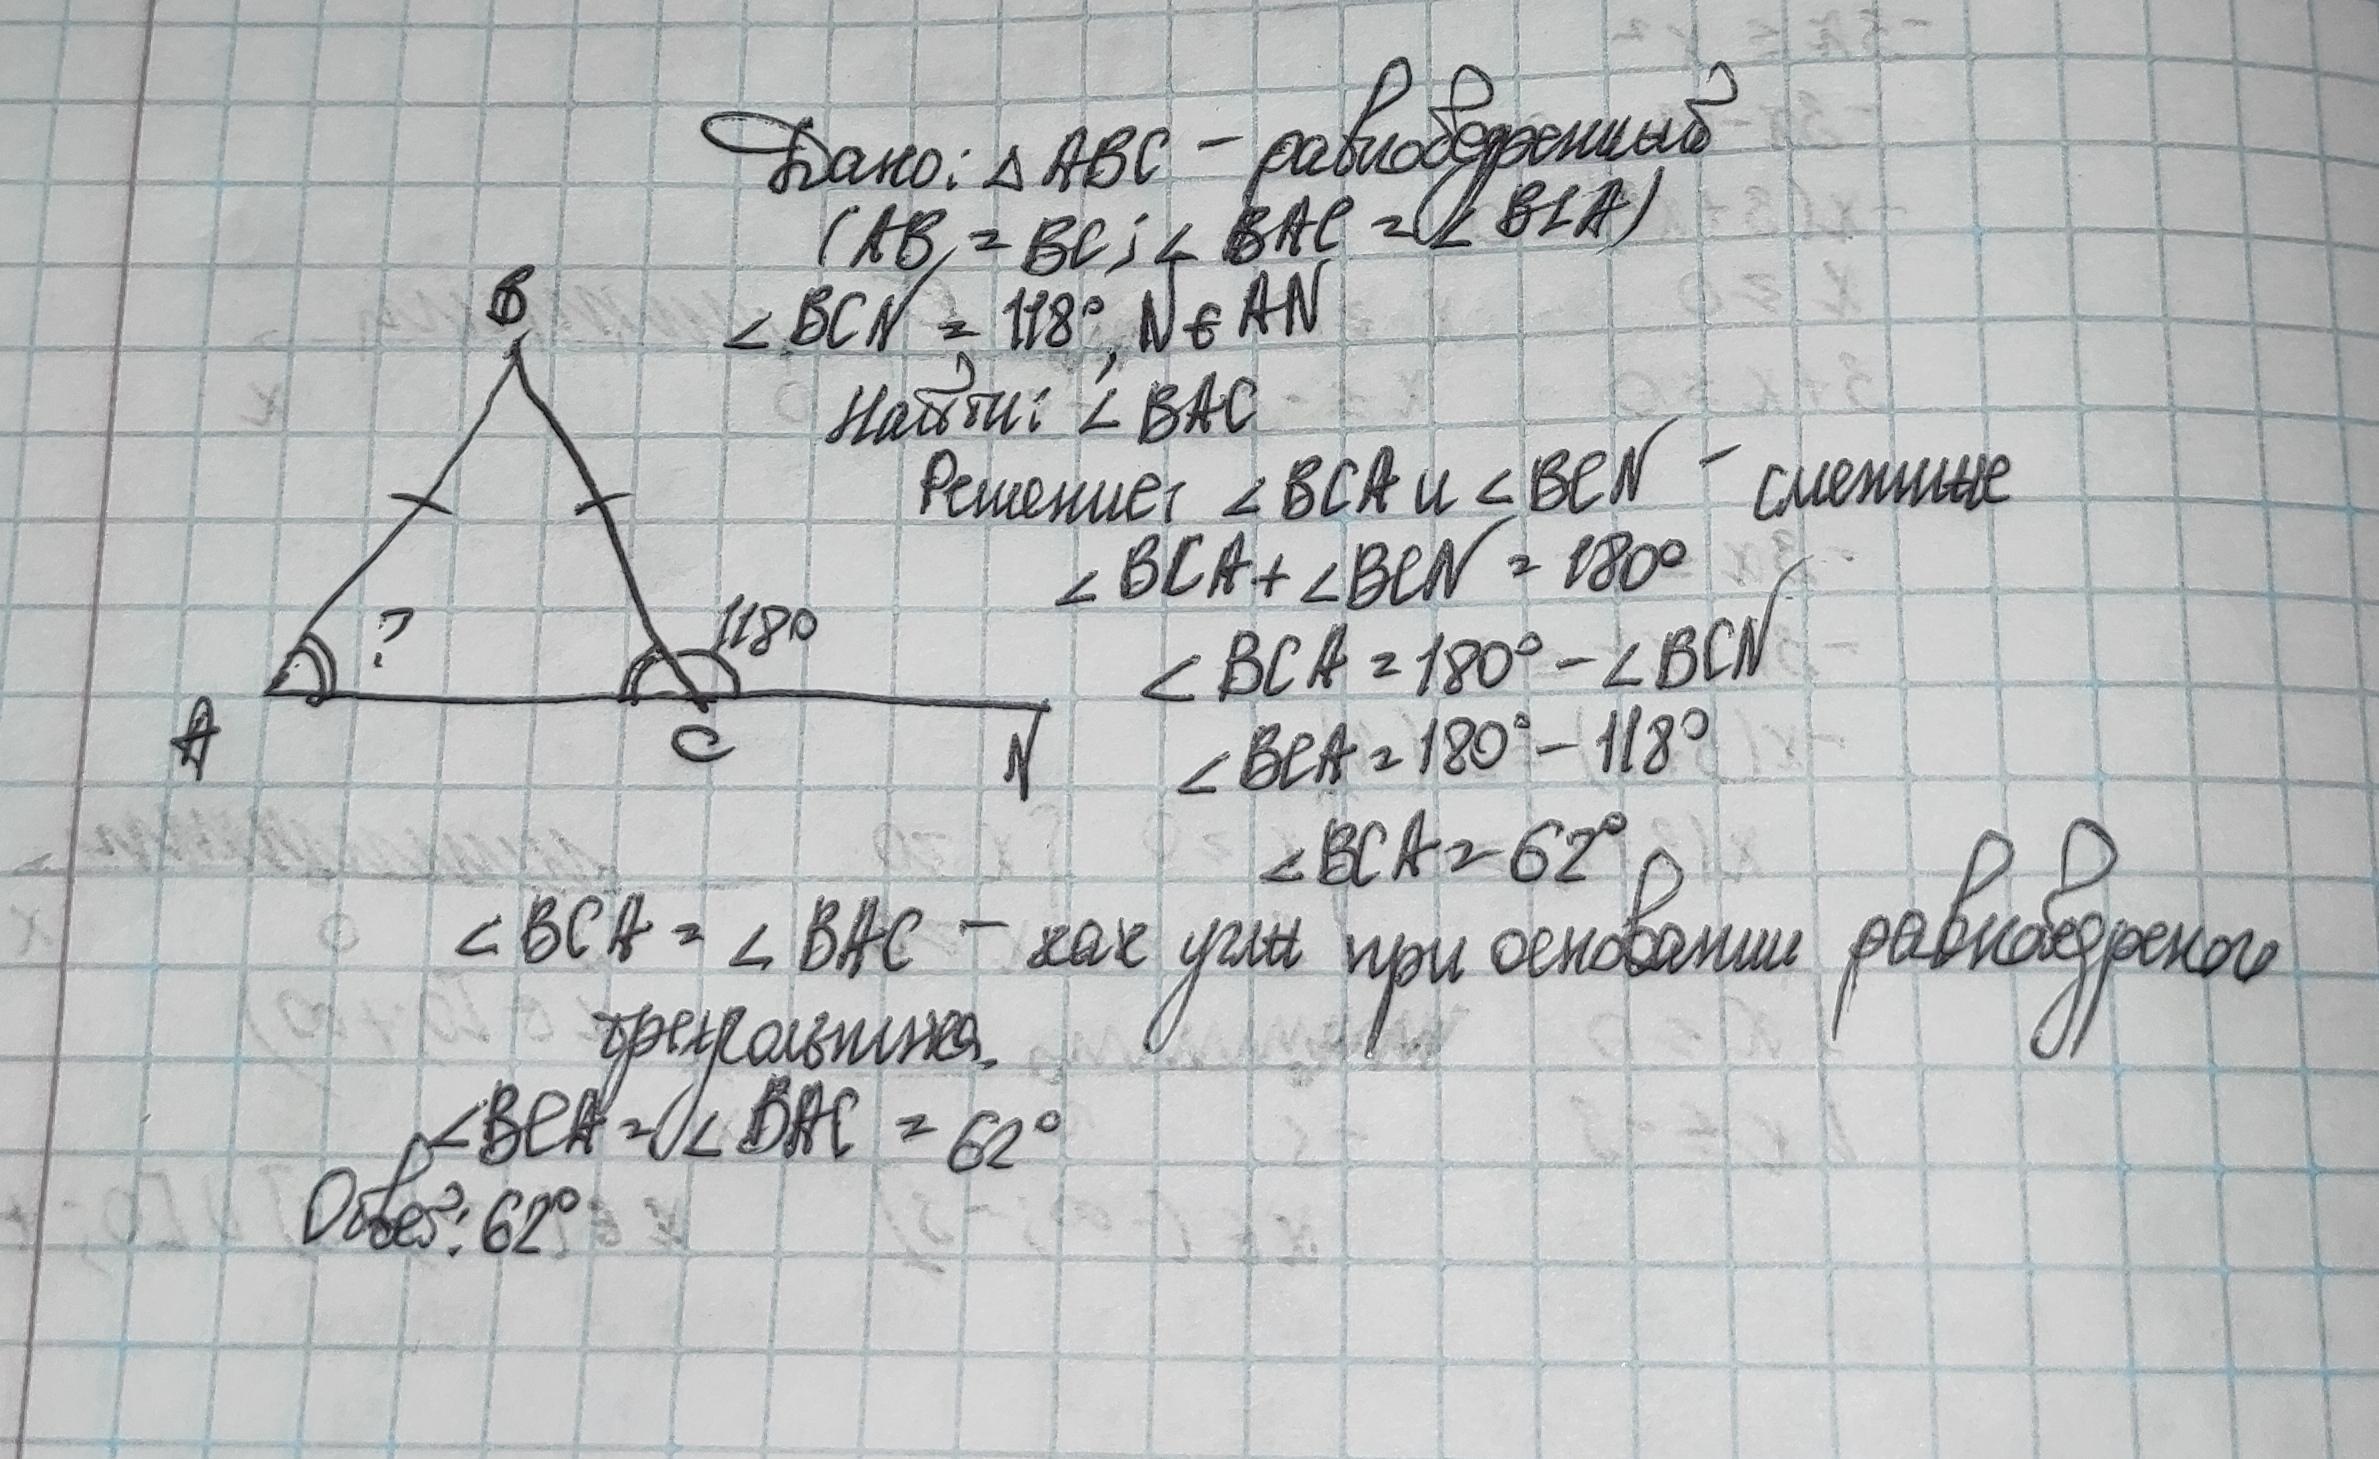 Дано: △ ABC - равнобедренный
(AB = BC; ∠ BAC = ∠ BCA)
∠ BCN = 118°, N ∈ AN
Найти: ∠ BAC
Решение: ∠ BCA и ∠ BCN - смежные
∠ BCA + ∠ BCN = 180°
∠ BCA = 180° - ∠ BCN
∠ BCA = 180° - 118°
∠ BCA = 62°
B
?
118°
A
C
N
∠ BCA = ∠ BAC - как углы при основании равнобедреного
треугольника.
∠ BCA = ∠ BAC = 62°
Ответ: 62°